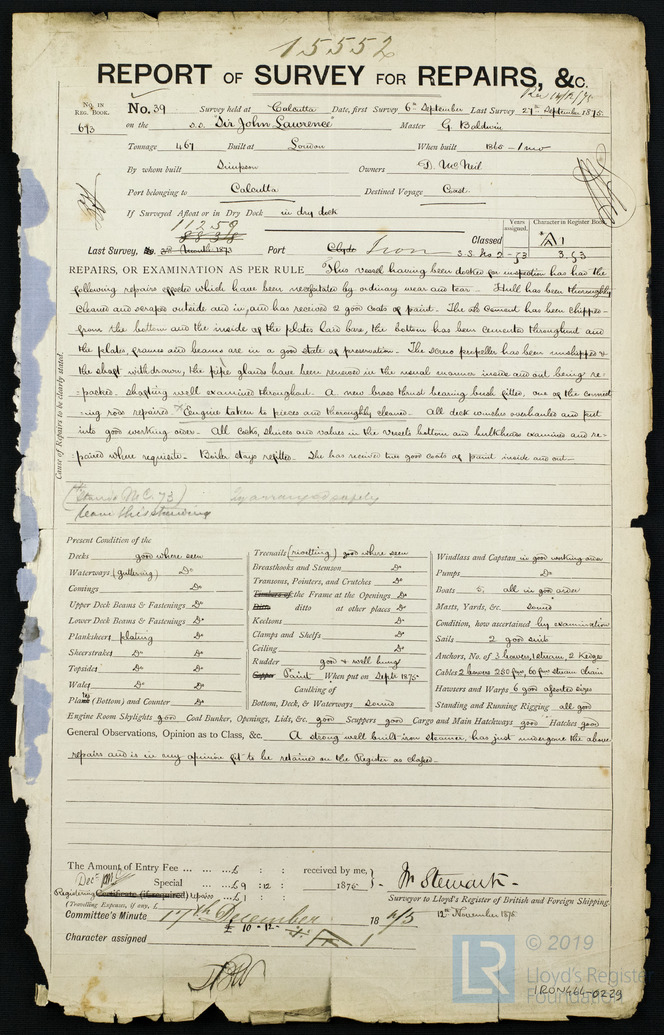 15552
REPORT OF SURVEY FOR REPAIRS, &c.
No. IN REG. BOOK.
No. 39 Survey held at Calcutta Date, first Survey 6th September Last Survey 27th September 1875
673 on the s.s. "Sir John Lawrence" Master G. Baldwin
Tonnage 467 Built at London When built 1865 - 1 mo
By whom built Simpson Owners D. McNeil
Port belonging to Calcutta Destined Voyage Coast.
If Surveyed Afloat or in Dry Dock in dry dock
Years assigned. Character in Register Book.
11259
Last Survey, No. Port Clyde Iron Classed A 1
S.S. No. 2 - 53 3.53
REPAIRS, OR EXAMINATION AS PER RULE This vessel having been docked for inspection has had the
following repairs effected which have been necessitated by ordinary wear and tear - Hull has been thoroughly
cleaned and scraped outside and in, and has received 2 good coats of paint. The old cement has been chipped
from the bottom and the inside of the plates laid bare, the bottom has been cemented throughout and
the plates, frames and beams are in a good state of preservation. The screw propeller has been unshipped &
the shaft withdrawn, the pipe glands have been renewed in the usual manner inside and out being re-
packed. Shafting well examined throughout. A new brass thrust bearing bush fitted, one of the connect-
ing rods repaired. Engine taken to pieces and thoroughly cleaned. All deck winches overhauled and put
into good working order. All Cocks, sluices and valves in the vessels bottom and bulkheads examined and re-
paired where requisite. Boiler stays refitted. She has received two good coats of paint inside and out
Cause of Repairs to be clearly stated.
(Stands MC. 73)
leave this standing
Present Condition of the
Decks good where seen
Waterways (guttering) Do
Comings Do
Upper Deck Beams & Fastenings Do
Lower Deck Beams & Fastenings Do
Planksheers plating Do
Sheerstrakes Do Do
Topsides Do Do
Wales Do Do
Plates (Bottom) and Counter Do
Treenails (rivetting) good where seen
Breasthooks and Stemson Do
Transoms, Pointers, and Crutches Do
Timbers of the Frame at the Openings Do
Ditto ditto at other places Do
Keelsons Do
Clamps and Shelfs Do
Ceiling Do
Rudder good & well hung
Copper Paint When put on Sept. 1875
Caulking of
Bottom, Deck, & Waterways sound
Windlass and Capstan in good working order
Pumps Do
Boats 5, all in good order
Masts, Yards, &c. sound
Condition, how ascertained by examination
Sails 2 good suits
Anchors, No. of 3 bowers, 1 stream, 2 Kedge
Cables 2 bowers 280 fm, 60 fm stream chain
Hawsers and Warps 6 good assorted sizes
Standing and Running Rigging all good
Engine Room Skylights good Coal Bunker, Openings, Lids, &c. good Scuppers good Cargo and Main Hatchways good Hatches good
General Observations, Opinion as to Class, &c. A strong well built iron steamer, has just undergone the above
repairs and is in my opinion fit to be retained on the Register as classed.
The Amount of Entry Fee ... ... £ : : received by me,
Special ... ... £9 : 12 : 1875
Registering Certificate (if required) repairs £1 : :
(Travelling Expenses, if any, £
Wm Stewart
Surveyor to Lloyd's Register of British and Foreign Shipping.
12th November 1875
Committee's Minute 17th December 1875
£ 10 - 12 -
Character assigned A 1
© 2019
LR
Lloyd's Register
Foundation
IRON466-0229